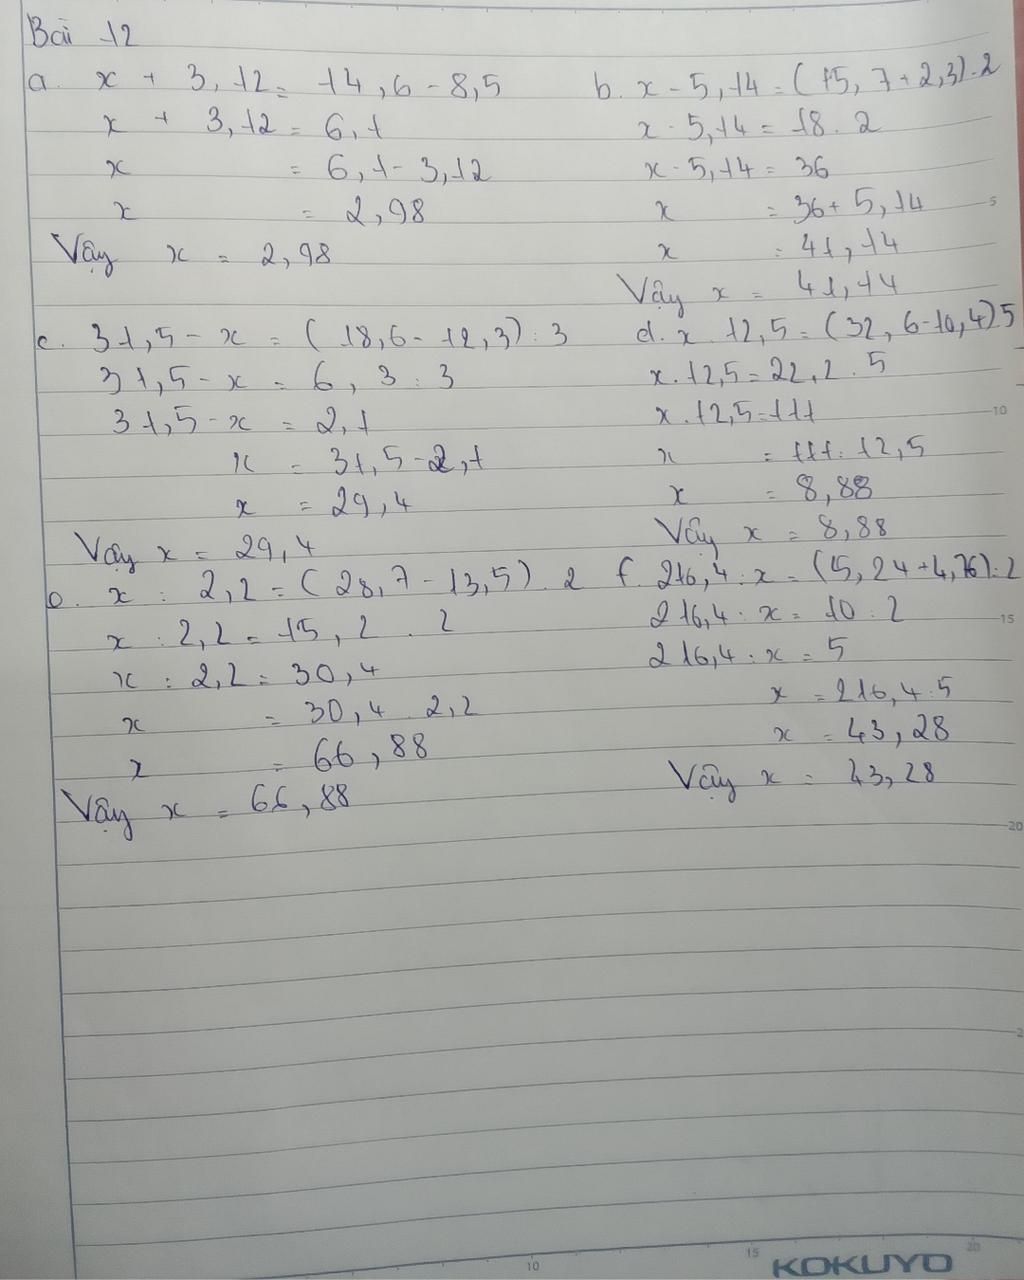 Bài 12
a. x + 3,12 = 14,6 - 8,5
x + 3,12 = 6,1
x = 6,1 - 3,12
x = 2,98
Vậy x = 2,98
b. x - 5,14 = (15,7 + 2,3) . 2
x - 5,14 = 18 . 2
x - 5,14 = 36
x = 36 + 5,14
x = 41,14
Vậy x = 41,14
c. 31,5 - x = (18,6 - 12,3) : 3
31,5 - x = 6,3 : 3
31,5 - x = 2,1
x = 31,5 - 2,1
x = 29,4
Vậy x = 29,4
d. x . 12,5 = (32,6 - 10,4) 5
x . 12,5 = 22,2 . 5
x . 12,5 = 111
x = 111 : 12,5
x = 8,88
Vậy x = 8,88
e. x : 2,2 = (28,7 - 13,5) . 2
x : 2,2 = 15,2 . 2
x : 2,2 = 30,4
x = 30,4 . 2,2
x = 66,88
Vậy x = 66,88
f. 216,4 : x = (5,24 + 4,76) : 2
216,4 : x = 10 : 2
216,4 : x = 5
x = 216,4 : 5
x = 43,28
Vậy x = 43,28
5
10
15
20
2
10
15
20
KOKUYO